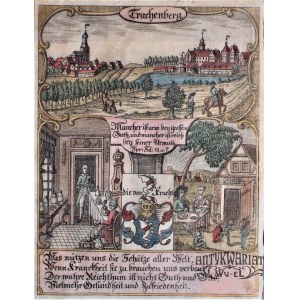 Trachenberg.
Mancher ist arm bey großem
Guth, und mancher ist reich
bey seiner Armuth.
die von
ANTYKWARIAT
Was nützen uns die Schätze aller Welt,
Wenn Kranckheit sie zu brauchen, uns verbeut
Der wahre Reichthum ist nicht Guth und
Vielmehr Gesundheit und Zufriedenheit.